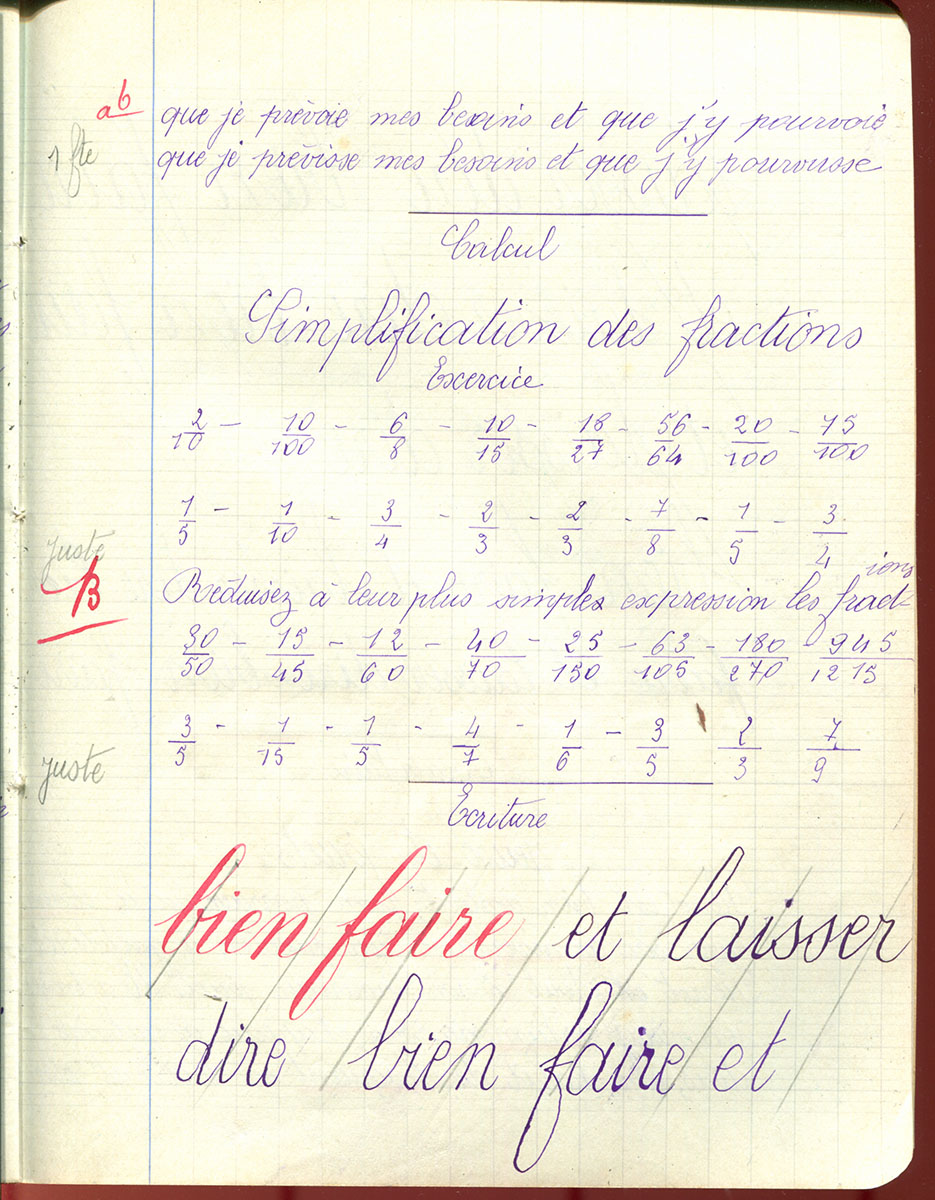 ab
que je prévoie mes besoins et que j'y pourvoie
1 fte
que je prévisse mes besoins et que j'y pourvusse
Calcul
Simplification des fractions
Exercice
2/10 - 10/100 - 6/8 - 10/15 - 18/27 - 56/64 - 20/100 - 75/100
1/5 - 1/10 - 3/4 - 2/3 - 2/3 - 7/8 - 1/5 - 3/4
juste
B
Réduisez à leur plus simples expression les fractions
30/50 - 15/45 - 12/60 - 40/70 - 25/150 - 63/105 - 180/270 - 945/1215
3/5 - 1/15 - 1/5 - 4/7 - 1/6 - 3/5 2/3 7/9
juste
Ecriture
bien faire et laisser
dire bien faire et